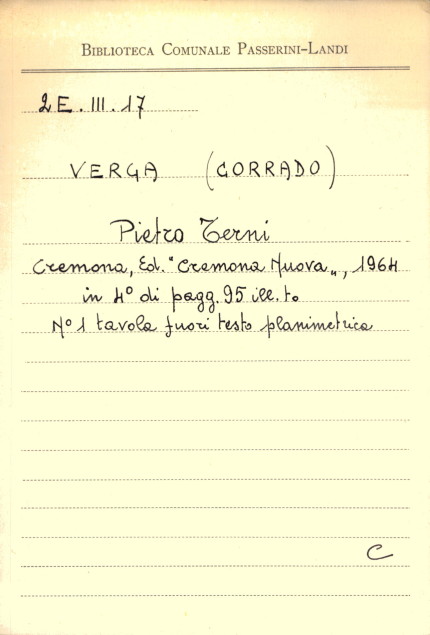 BIBLIOTECA COMUNALE PASSERINI-LANDI
2E.III.17
VERGA (CORRADO)
Pietro Terni
Cremona, Ed. "Cremona Nuova„, 1964
in 4° di pagg. 95 ill. to
N° 1 tavola fuori testo planimetrica
C